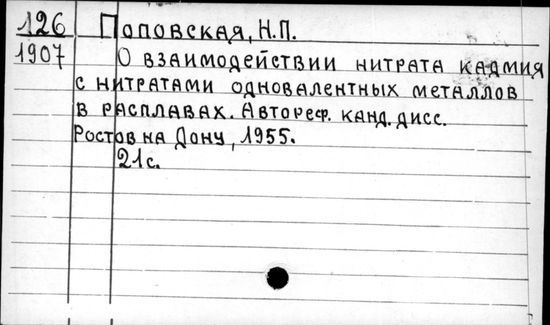 126 Поповская, Н.П.
1907 О взаимодействии нитрата кадмия
с нитратами одновалентных металлов
в расплавах. Автореф. канд. дисс.
Ростов на Дону, 1955.
21с.